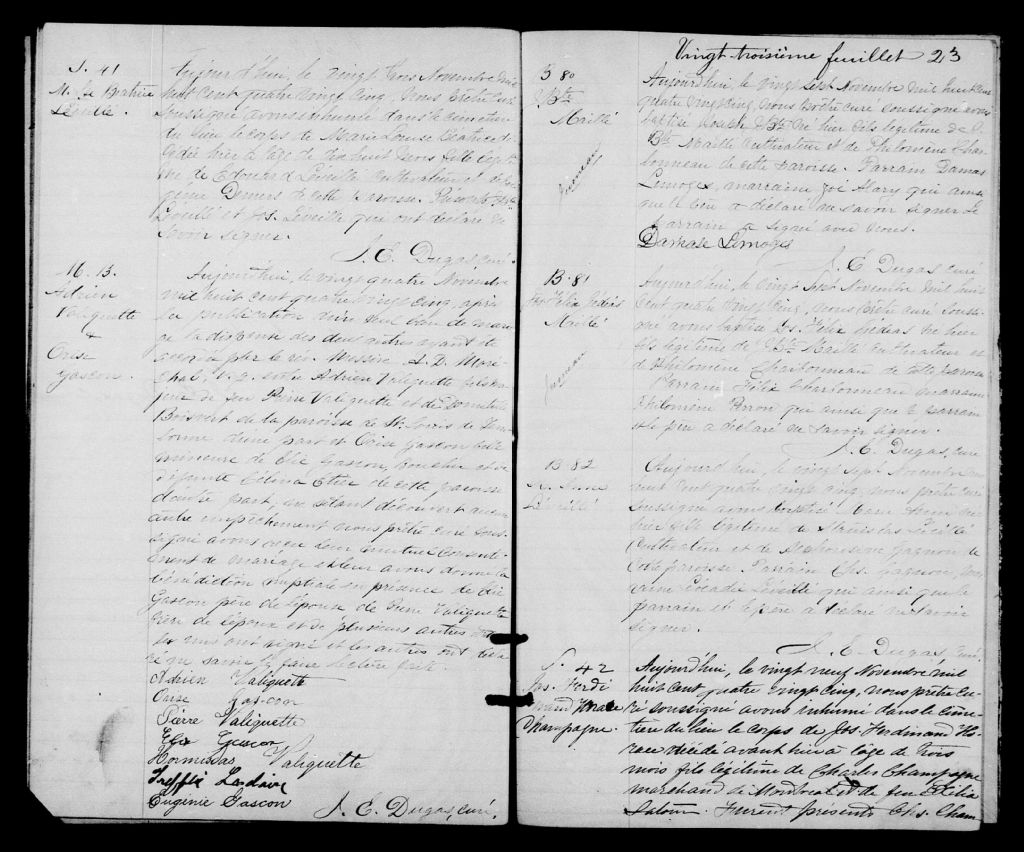 S. 41
M. L. Béatrice
Léveillé.
Aujourd'hui, le vingt trois Novembre mil
huit cent quatre vingt cinq, nous prêtre curé
soussigné avons inhumé dans le cimetière
du lieu le corps de Marie Louise Béatrice dé-
cédée hier à l'âge de dix huit mois fille légiti-
me de Edouard Léveillé cultivateur et de
Demers de cette paroisse. Présents
Léveillé et Jos. Léveillé qui ont déclaré ne
savoir signer.
J. E. Dugas, curé.
M. 13.
Adrien
Valiquette
+
Orise
Gascon.
Aujourd'hui, le vingt quatre Novembre
mil huit cent quatre vingt cinq, après
la publication d'un seul ban de maria-
ge la dispense des deux autres ayant été
accordée par le rév. Messire A. D. Maré-
chal, V. G. entre Adrien Valiquette fils ma-
jeur de feu Pierre Valiquette et de
Boisvert de la paroisse de St. Louis de Terre-
bonne d'une part et Orise Gascon fille
mineure de Elie Gascon, boucher et de
défunte Célina de cette paroisse
d'autre part, ne s'étant découvert aucun
autre empêchement nous prêtre curé sous-
signé avons reçu leur mutuel consente-
ment de mariage et leur avons donné la
bénédiction nuptiale en présence de Elie
Gascon père de l'épouse de Pierre Valiquette
frère de l'époux et de plusieurs autres dont
les uns ont signé et les autres ont décla-
ré ne savoir le faire lecture faite.
Adrien Valiquette
Orise Gascon
Pierre Valiquette
Elie Gascon
Hormisdas Valiquette
Trefflé
Eugenie Gascon
J. E. Dugas, curé.
Vingt-troisième feuillet 23
B 80
Bte
Maillé
jumeau
Aujourd'hui, le vingt sept Novembre mil huit cent
quatre vingt cinq, nous prêtre curé soussigné avons
baptisé Joseph Bte né hier fils légitime de J.
Bte Maillé cultivateur et de Philomène Char-
bonneau de cette paroisse. Parrain Damas
Limoges, marraine Zoé Alary qui ainsi
que le père a déclaré ne savoir signer. Le
parrain a signé avec nous.
Damase Limoges
J. E. Dugas, curé
B. 81
Jos. Félix
Maillé
jumeau
Aujourd'hui, le vingt sept Novembre mil huit
cent quatre vingt cinq, nous prêtre curé sous-
signé avons baptisé Jos. Félix né hier
fils légitime de J. Bte Maillé cultivateur et
de Philomène Charbonneau de cette paroisse
Parrain Félix Charbonneau marraine
Philomène Perron qui ainsi que le parrain
et le père a déclaré ne savoir signer.
J. E. Dugas, curé
B. 82
M. Anna
Léveillé
Aujourd'hui, le vingt sept Novembre mil
huit cent quatre vingt cinq, nous prêtre curé
soussigné avons baptisé Marie Anna née
hier fille légitime de Stanislas Léveillé
cultivateur et de Gagnon de
cette paroisse. Parrain Chs. Gagnon, mar-
raine Léocadie Léveillé qui ainsi que le
parrain et le père a déclaré ne savoir
signer.
J. E. Dugas, curé.
S. 42
Jos. Ferdi
nand Horace
Champagne.
Aujourd'hui, le vingt neuf Novembre mil
huit cent quatre vingt cinq, nous prêtre cu-
ré soussigné avons inhumé dans le cime-
tière du lieu le corps de Jos Ferdinand Ho-
race décédé avant hier à l'âge de trois
mois fils légitime de Charles Champagne
marchand de Montréal et de feue Exilia
Furent présents Chs. Cham